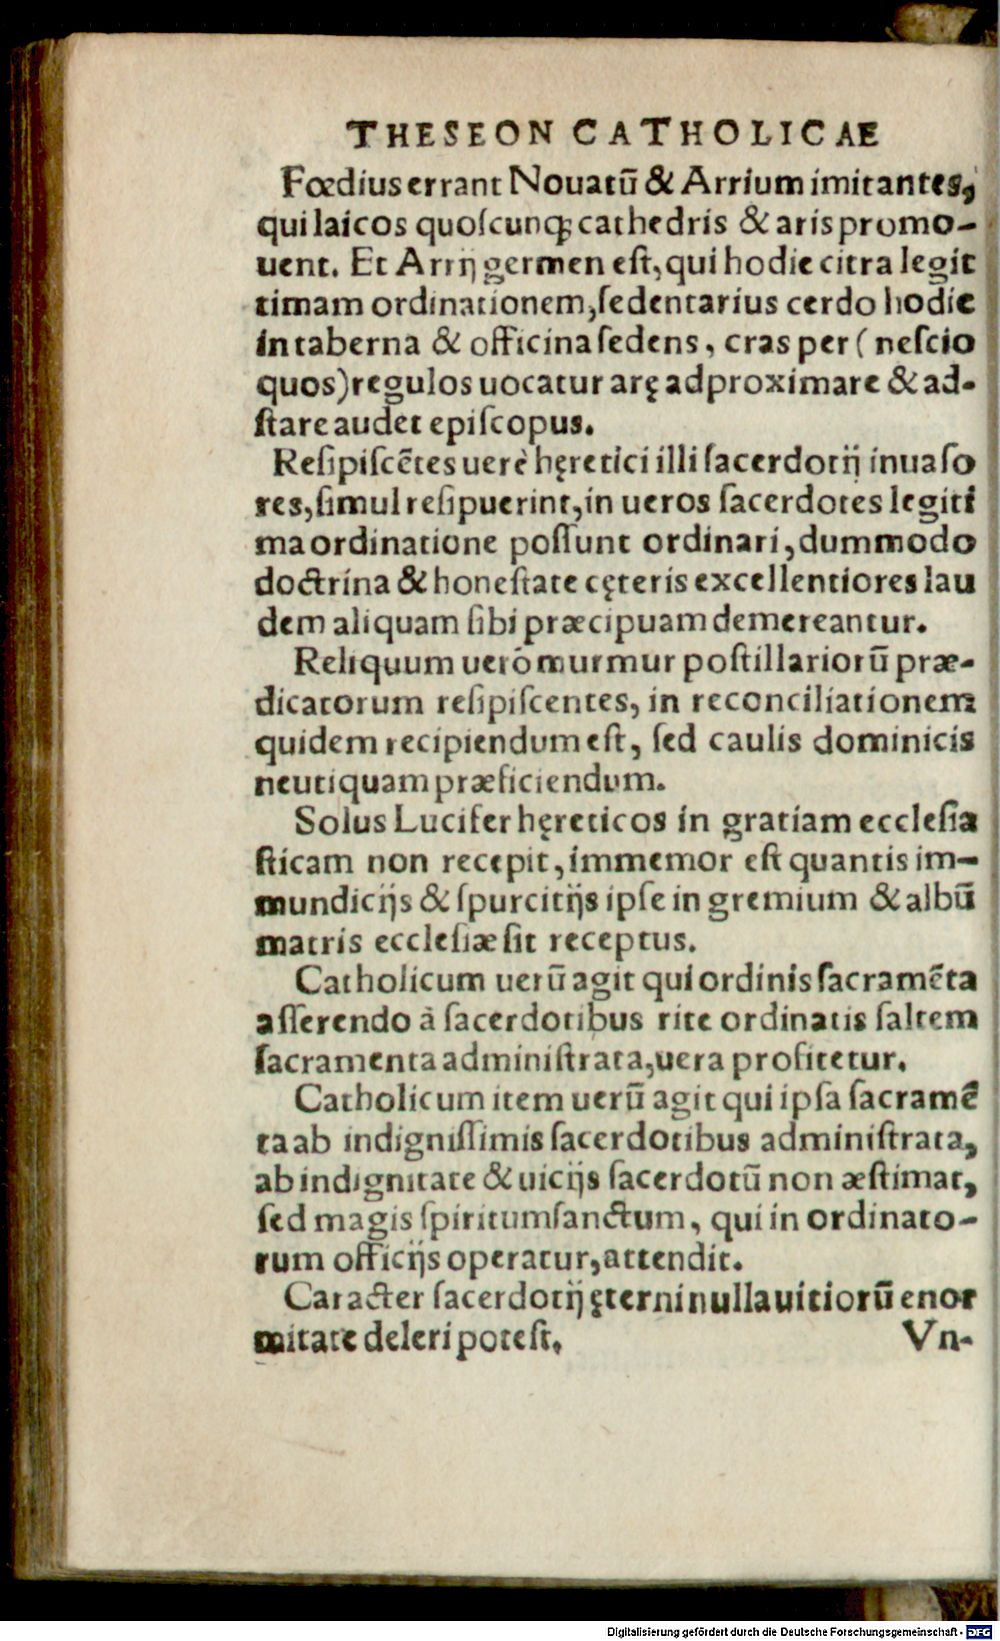 THESEON CATHOLICAE
Fœdius errant Nouatū & Arrium imitantes,
qui laicos quoſcunq; cathedris & aris promo-
uent. Et Arrij germen eſt, qui hodie citra legit
timam ordinationem, ſedentarius cerdo hodie
in taberna & officina ſedens, cras per ( neſcio
quos) regulos uocatur arę adproximare & ad-
ſtare audet epiſcopus.
Reſipiſcētes uerè hęretici illi ſacerdotij inuaſo
res, ſimul reſipuerint, in ueros ſacerdotes legiti
ma ordinatione poſſunt ordinari, dummodo
doctrina & honeſtate cęteris excellentiores lau
dem aliquam ſibi præcipuam demereantur.
Reliquum uerò murmur poſtillariorū præ-
dicatorum reſipiſcentes, in reconciliationem
quidem recipiendum eſt, ſed caulis dominicis
neutiquam præficiendum.
Solus Lucifer hęreticos in gratiam eccleſia
ſticam non recepit, immemor eſt quantis im-
mundicijs & ſpurcitijs ipſe in gremium & albū
matris eccleſiæ ſit receptus.
Catholicum uerū agit qui ordinis ſacramēta
aſſerendo à ſacerdotibus rite ordinatis ſaltem
ſacramenta adminiſtrata, uera profitetur.
Catholicum item uerū agit qui ipſa ſacramē
ta ab indigniſſimis ſacerdotibus adminiſtrata,
ab indignitate & uicijs ſacerdotū non æſtimat,
ſed magis ſpiritumſanctum, qui in ordinato-
rum officijs operatur, attendit.
Caracter ſacerdotij ęterni nulla uitiorū enor
mitate deleri poteſt. Vn-
Digitalisierung gefördert durch die Deutsche Forschungsgemeinschaft - DFG